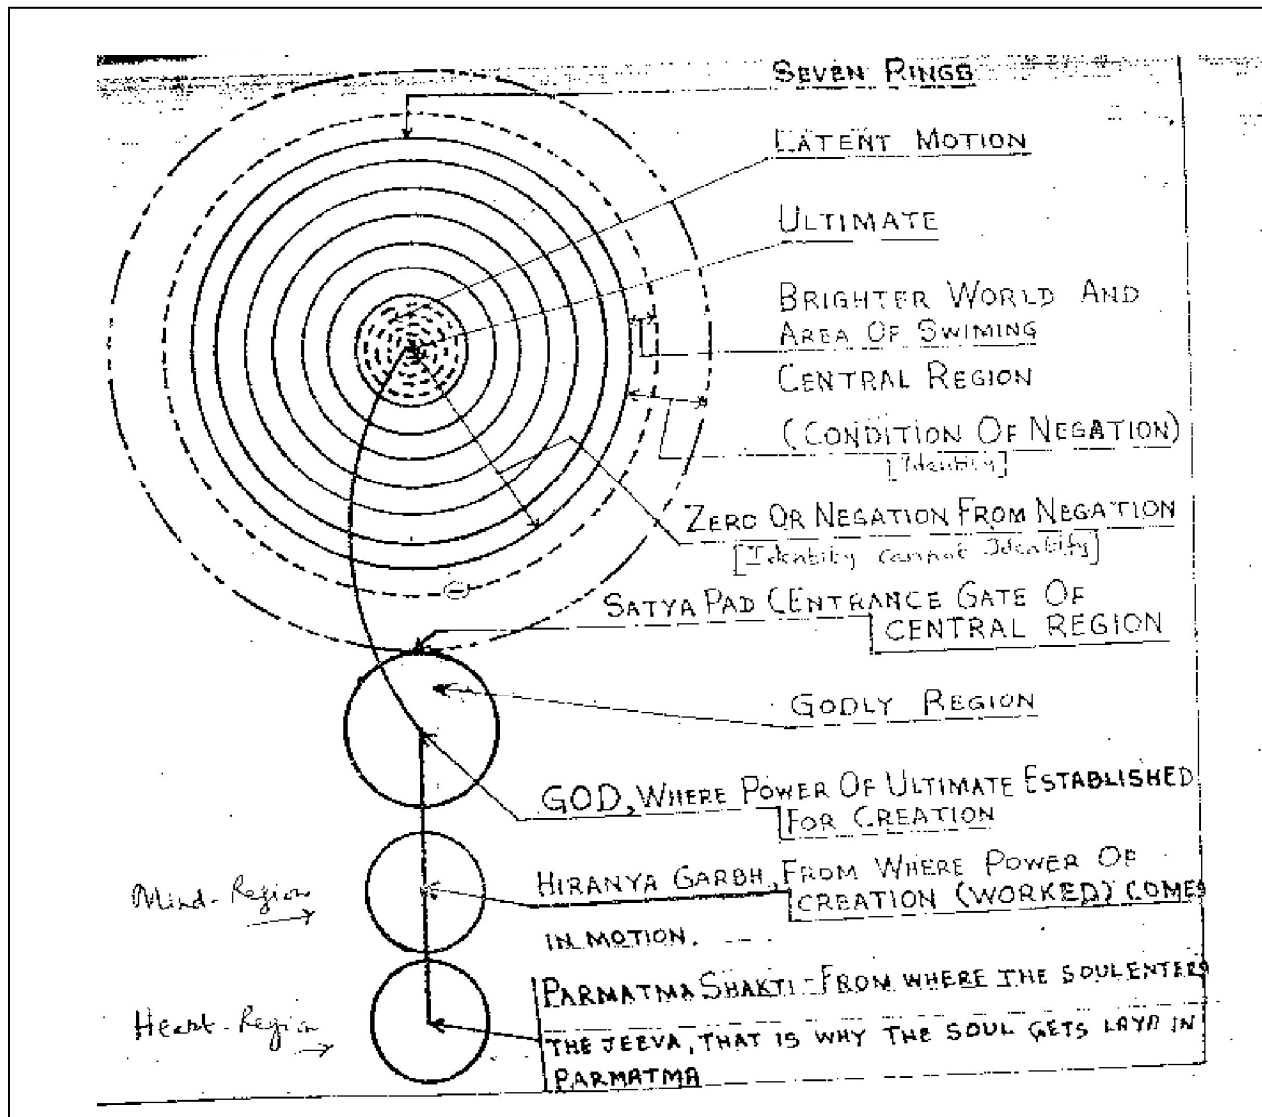 SEVEN RINGS
LATENT MOTION
ULTIMATE
BRIGHTER WORLD AND
AREA OF SWIMING
CENTRAL REGION
(CONDITION OF NEGATION)
[Identity]
ZERO OR NEGATION FROM NEGATION
[Identity cannot Identify]
SATYA PAD (ENTRANCE GATE OF
CENTRAL REGION
GODLY REGION
GOD, WHERE POWER OF ULTIMATE ESTABLISHED
FOR CREATION
Mind-Region
HIRANYA GARBH, FROM WHERE POWER OF
CREATION (WORKED) COMES
IN MOTION.
Heart-Region
PARMATMA SHAKTI - FROM WHERE THE SOUL ENTERS
THE JEEVA, THAT IS WHY THE SOUL GETS LAYA IN
PARMATMA